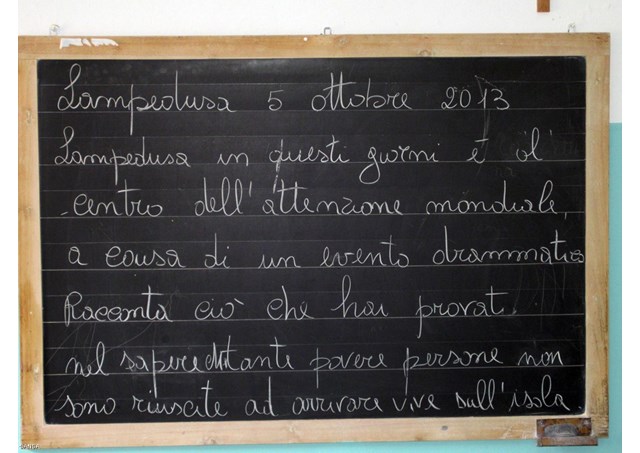 Lampedusa 5 ottobre 2013
Lampedusa in questi giorni è il
centro dell'attenzione mondiale,
a causa di un evento drammatico
Racconta ciò che hai provat
nel sapere di tante povere persone non
sono riuscite ad arrivare vive sull'isola
©ANSA